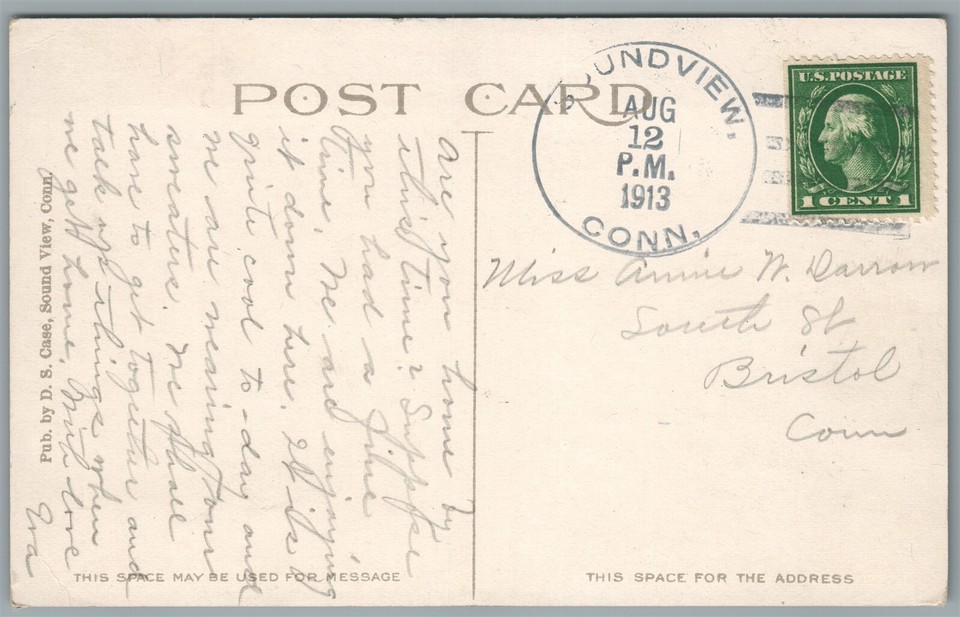 POST CARD
SOUNDVIEW, CONN.
AUG
12
P.M.
1913
U.S. POSTAGE
1 CENT 1
Are you home by
this time? Suppose
you had a fine
time. We are enjoying
it down here. It is
quite cool to-day and
we are wearing our
sweaters. We shall
have to get together and
talk up things when
we get home. With love
Eva
Miss Annie W. Darrow
South St
Bristol
Conn
Pub. by D. S. Case, Sound View, Conn.
THIS SPACE MAY BE USED FOR MESSAGE
THIS SPACE FOR THE ADDRESS